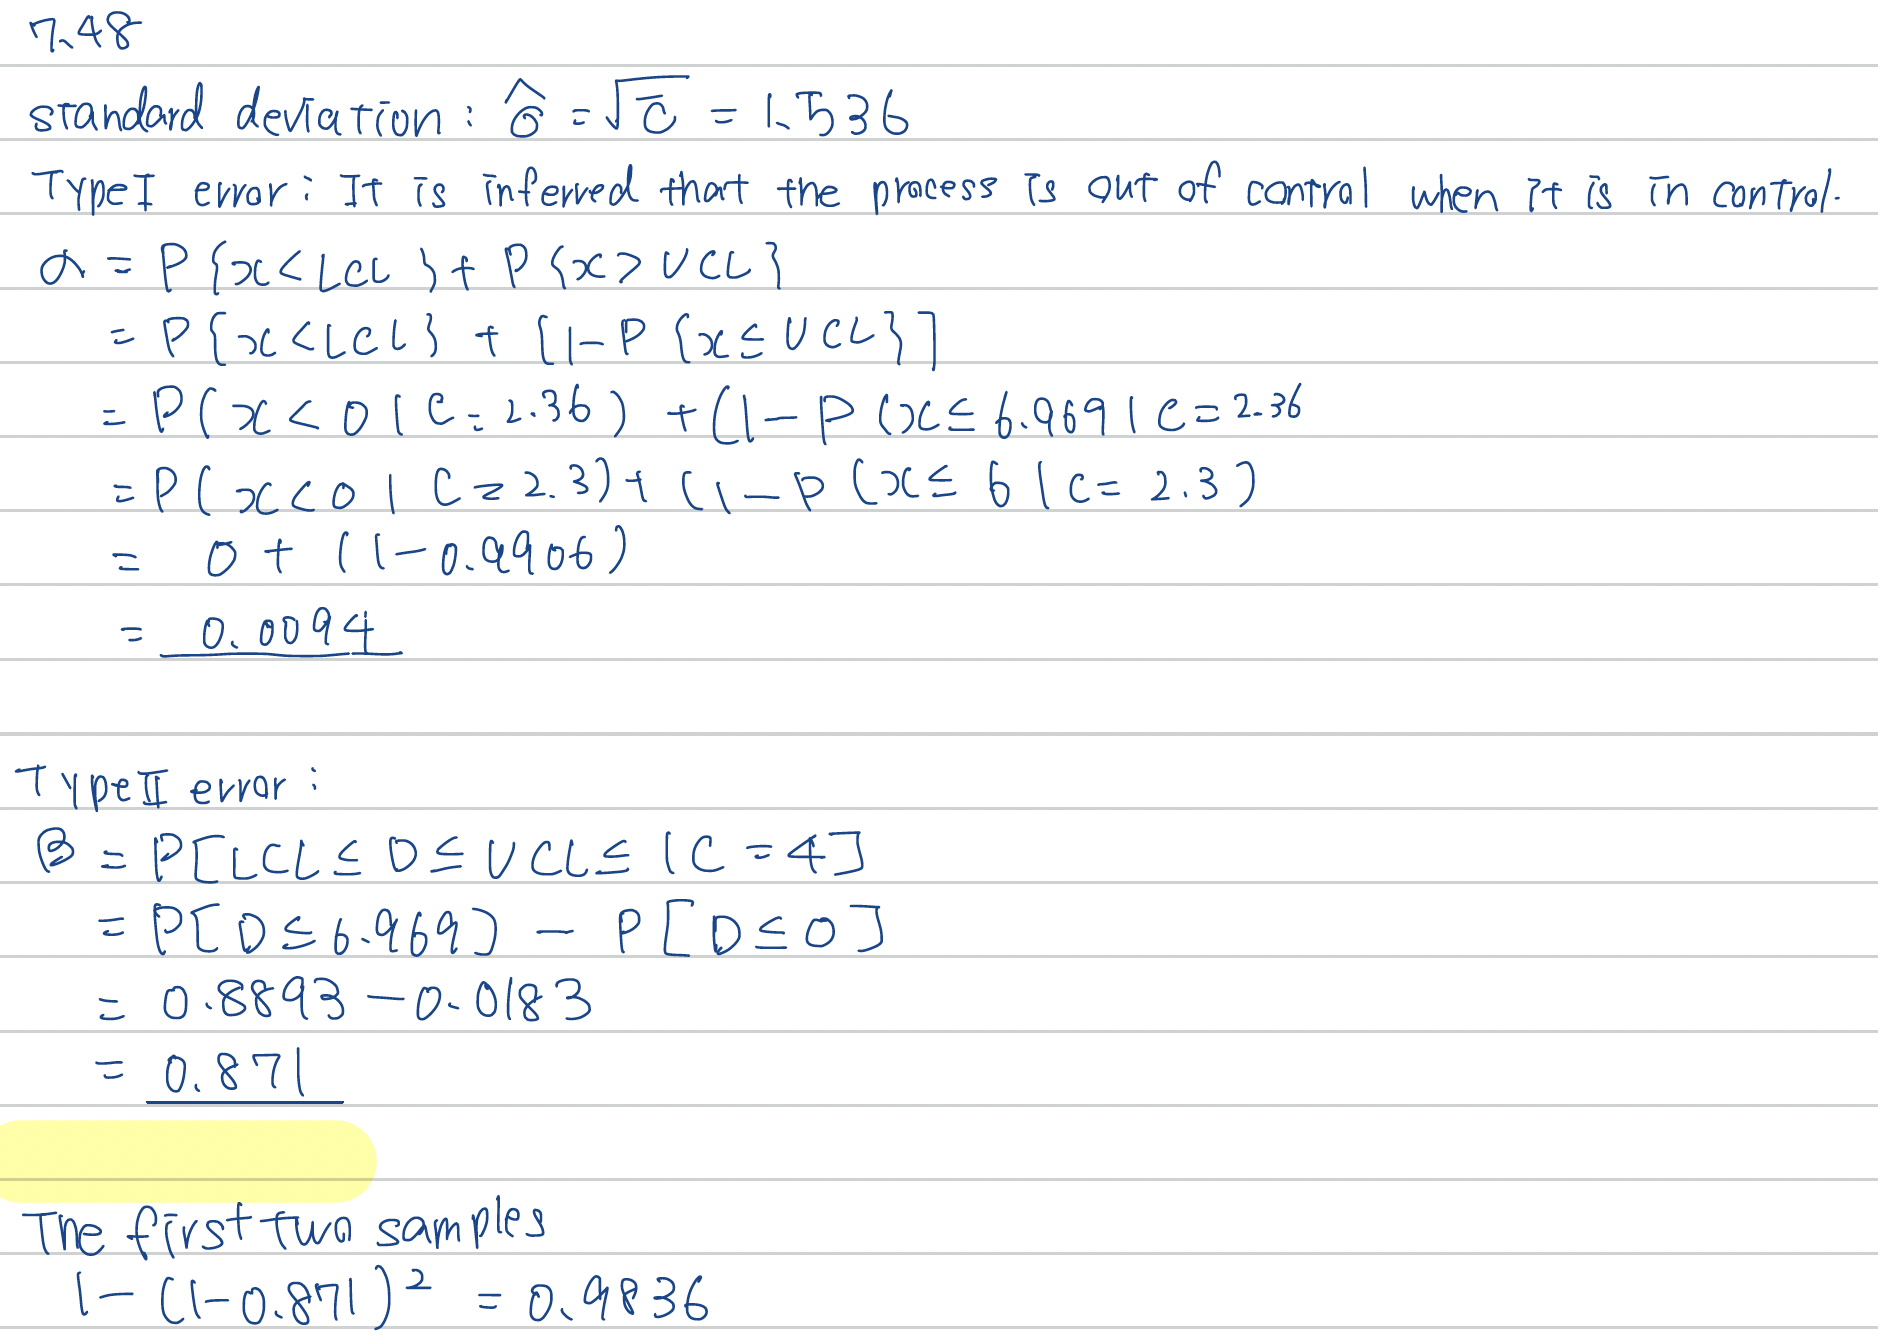 7.48
standard deviation : σ̂ = √c̄ = 1.536
Type I error : It is inferred that the process is out of control when it is in control.
α = P{x<LCL} + P{x>UCL}
= P{x<LCL} + [1-P{x≤UCL}]
= P(x<0|C=2.36) + (1-P(x≤6.969|C=2.36
= P(x<0|C=2.3) + (1-P(x≤6|C=2.3)
= 0 + (1-0.9906)
= 0.0094
Type II error :
β = P[LCL≤D≤UCL≤|C=4]
= P[D≤6.969] - P[D≤0]
= 0.8893-0.0183
= 0.871
The first two samples
1-(1-0.871)² = 0.9836